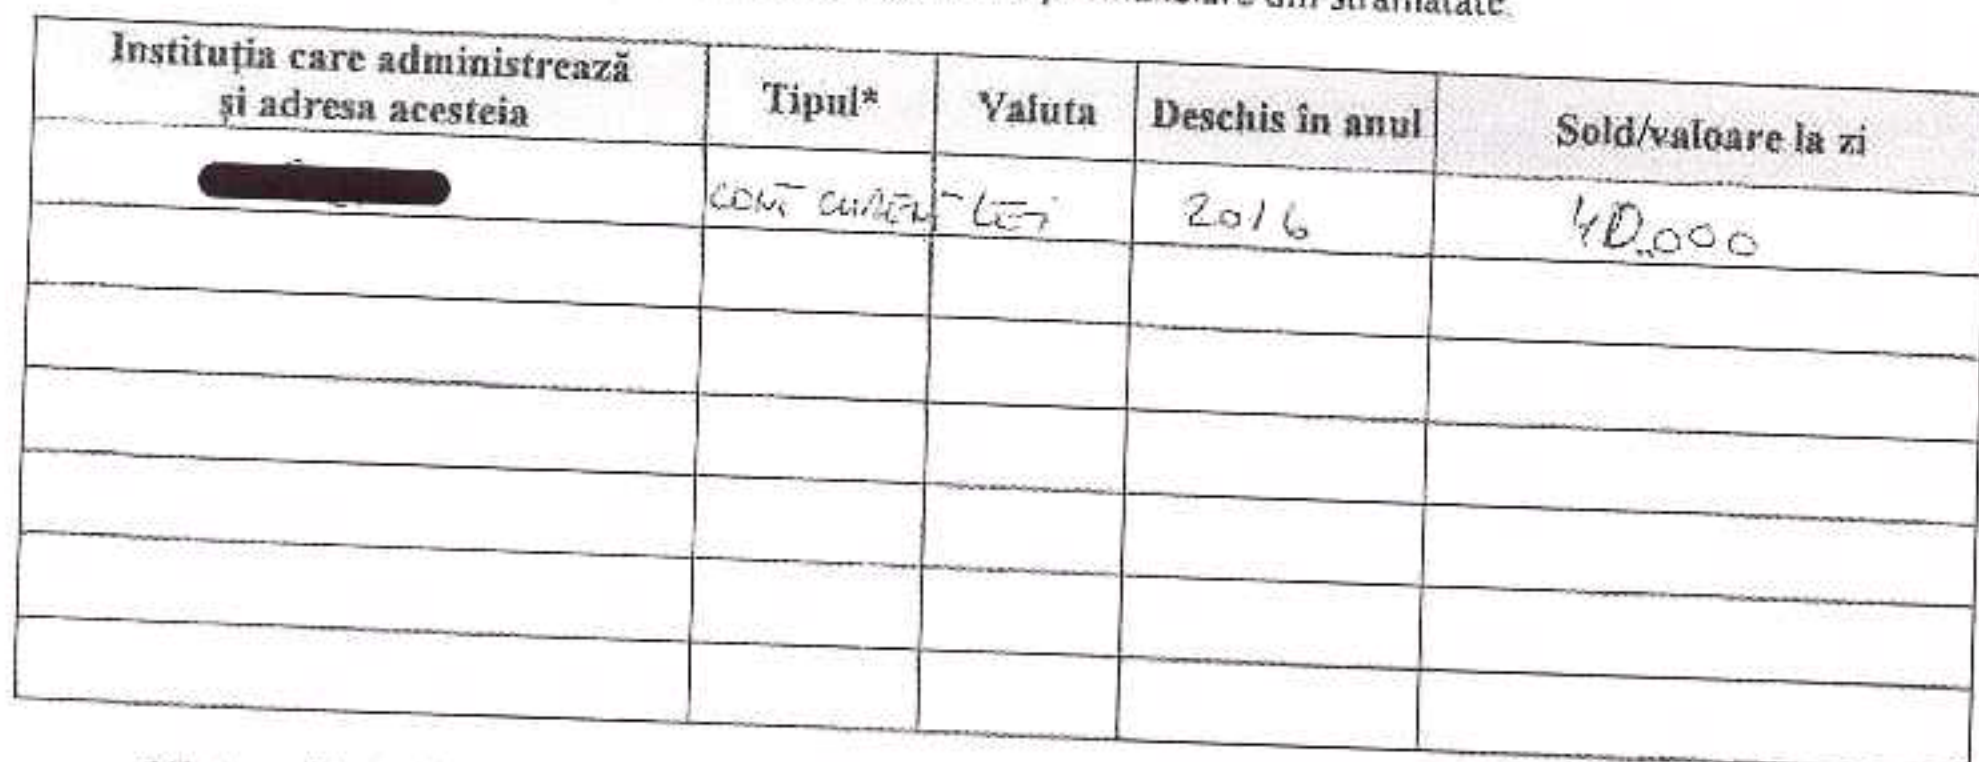 din străinătate.
Instituția care administrează
și adresa acesteia
Tipul*
Valuta
Deschis în anul
Sold/valoare la zi
CONT CURENT
LEI
2016
40.000